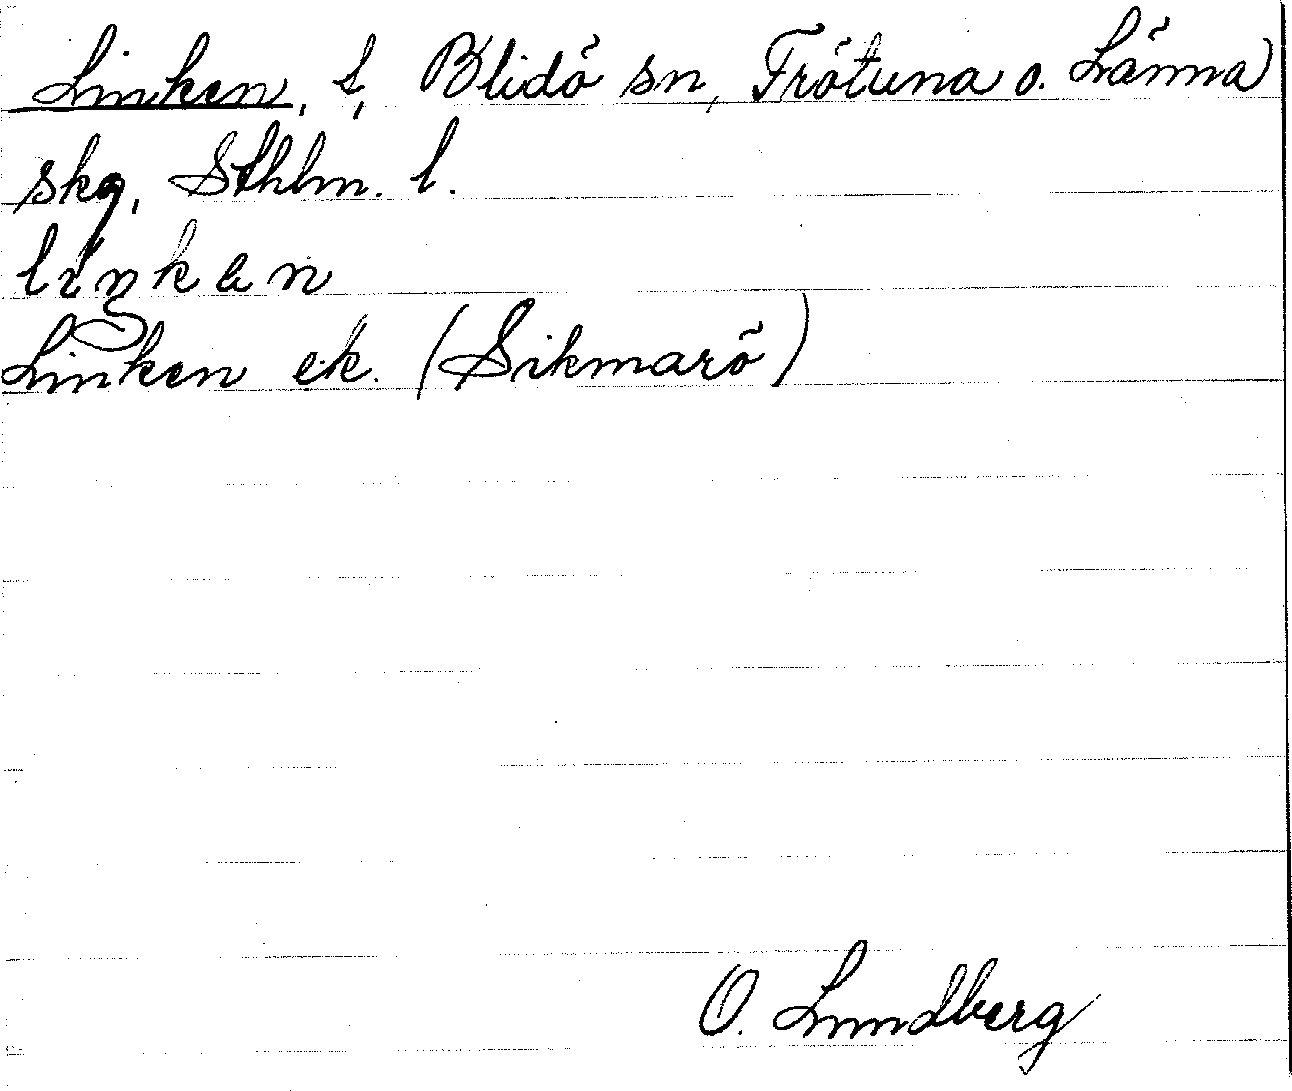 Linken, ɫ, Blidö sn, Frötuna o. Länna
skg, Sthlm. l.
liŋkən
Linken ek. (Sikmarö)
O. Lundberg